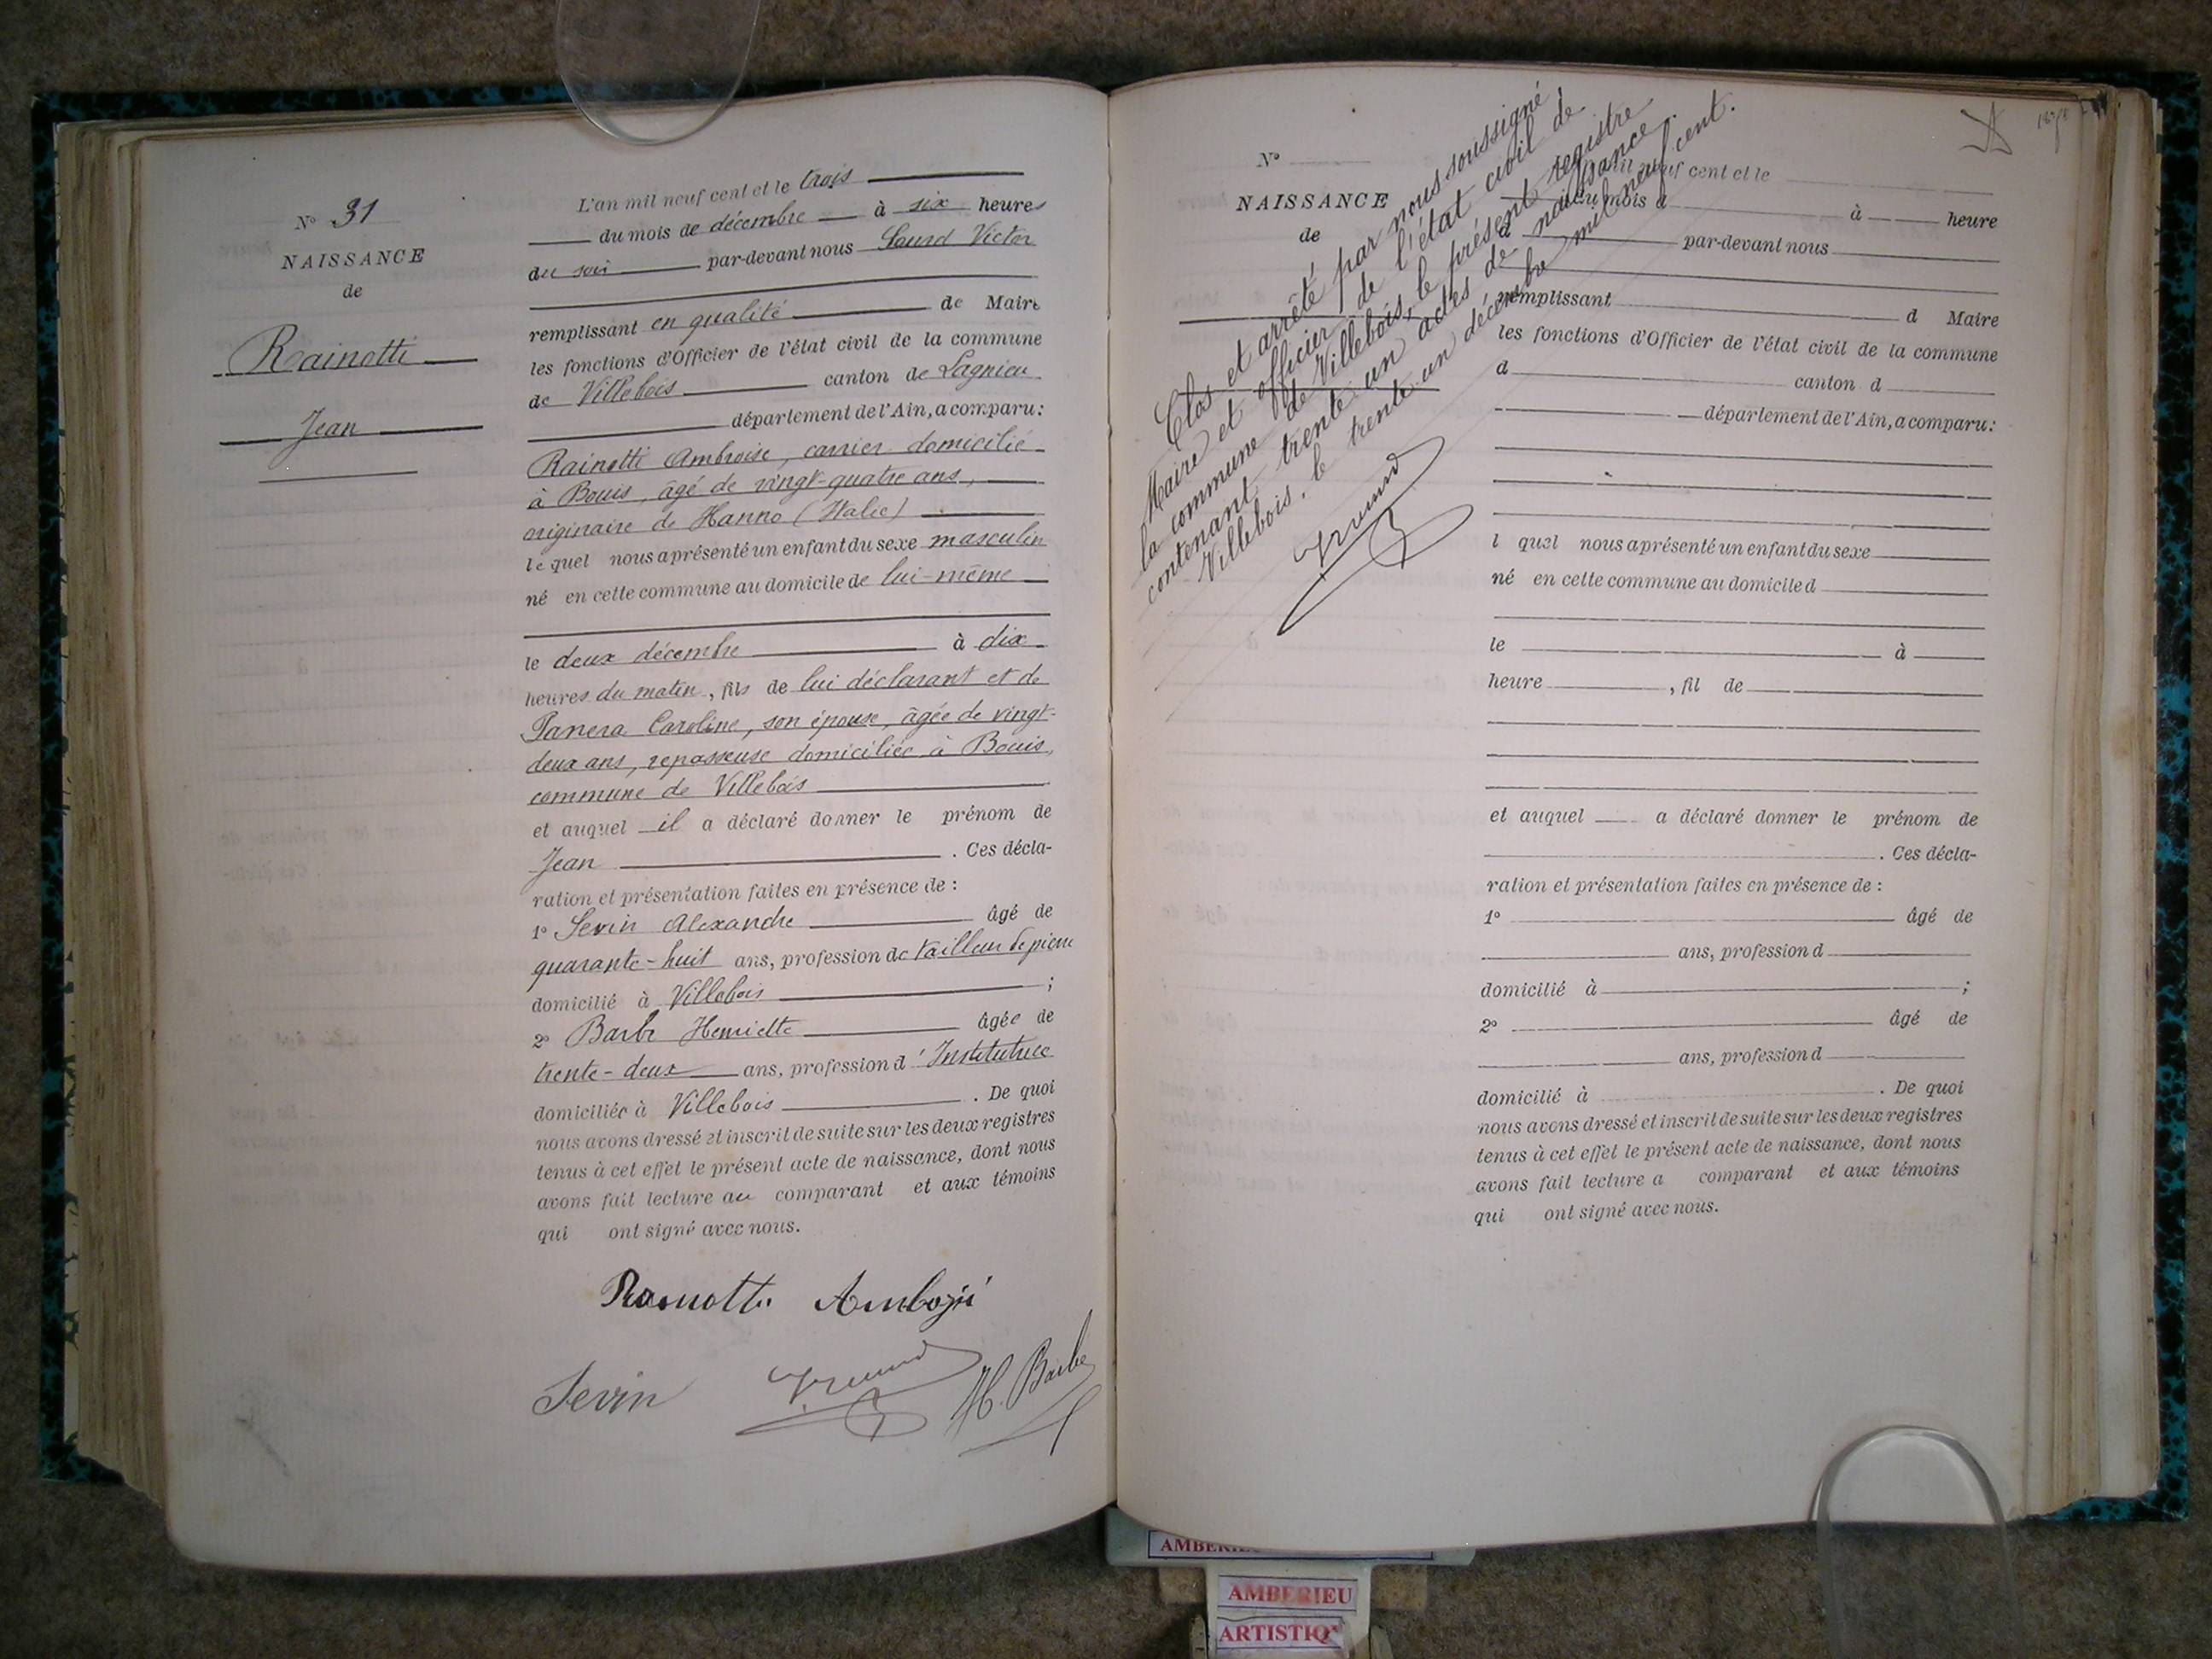 N° 31
NAISSANCE
de
Rainotti
Jean
L'an mil neuf cent et le trois
du mois de décembre à six heures
du soir par-devant nous Lourd Victor
remplissant en qualité de Maire
les fonctions d'Officier de l'état civil de la commune
de Villebois canton de Lagnieu
département de l'Ain, a comparu:
Rainotti Ambroise, carrier domicilié
à Bouis, âgé de vingt-quatre ans,
originaire de Hanno (Italie)
lequel nous a présenté un enfant du sexe masculin
né en cette commune au domicile de lui-même
le deux décembre à dix
heures du matin, fils de lui déclarant et de
Panera Caroline, son épouse, âgée de vingt-
deux ans, repasseuse domiciliée à Bouis,
commune de Villebois
et auquel il a déclaré donner le prénom de
Jean. Ces décla-
ration et présentation faites en présence de :
1° Sevin Alexandre âgé de
quarante-huit ans, profession de tailleur de pierre
domicilié à Villebois ;
2° Barbe Henriette âgée de
trente-deux ans, profession d'Institutrice
domiciliée à Villebois. De quoi
nous avons dressé et inscrit de suite sur les deux registres
tenus à cet effet le présent acte de naissance, dont nous
avons fait lecture au comparant et aux témoins
qui ont signé avec nous.
Rainotti
Sevin H. Barbe
N°
NAISSANCE
de
Clos et arrêté par nous soussigné,
Maire et officier de l'état civil de
la commune de Villebois, le présent registre
contenant trente un actes de naissance.
Villebois, le trente un décembre mil neuf cent.
neuf cent et le
du mois d à heure
d par-devant nous
remplissant d Maire
les fonctions d'Officier de l'état civil de la commune
d canton d
département de l'Ain, a comparu:
l quel nous a présenté un enfant du sexe
né en cette commune au domicile d
le à
heure , fil de
et auquel a déclaré donner le prénom de
. Ces décla-
ration et présentation faites en présence de :
1° âgé de
ans, profession d
domicilié à ;
2° âgé de
ans, profession d
domicilié à . De quoi
nous avons dressé et inscrit de suite sur les deux registres
tenus à cet effet le présent acte de naissance, dont nous
avons fait lecture a comparant et aux témoins
qui ont signé avec nous.
AMBERIEU
ARTISTIQ